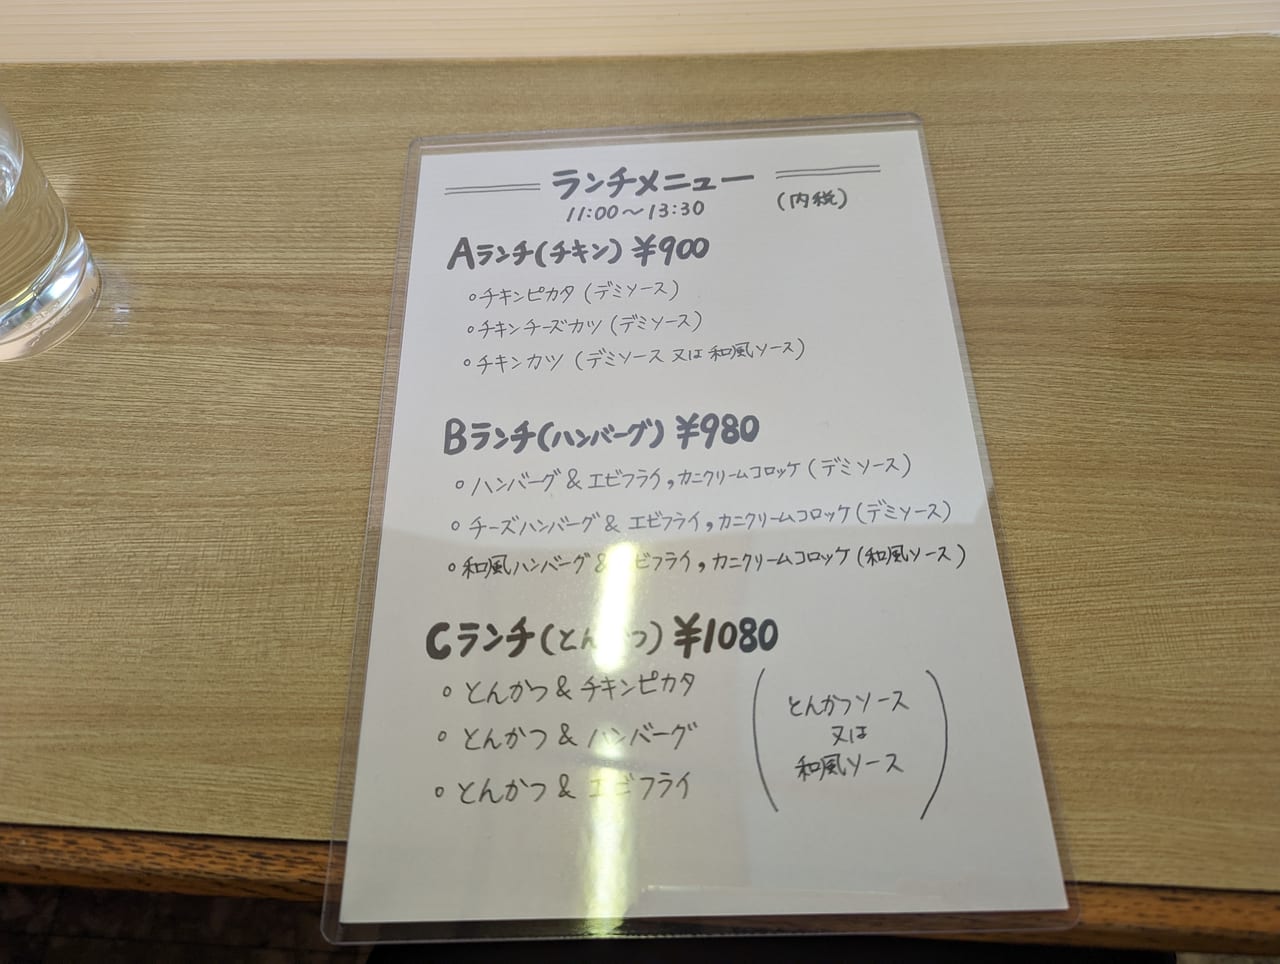 ランチメニュー
11:00～13:30
(内税)
Aランチ(チキン)¥900
○チキンピカタ(デミソース)
○チキンチーズカツ(デミソース)
○チキンカツ(デミソース又は和風ソース)
Bランチ(ハンバーグ)¥980
○ハンバーグ&エビフライ,カニクリームコロッケ(デミソース)
○チーズハンバーグ&エビフライ,カニクリームコロッケ(デミソース)
○和風ハンバーグ&エビフライ,カニクリームコロッケ(和風ソース)
Cランチ(とんかつ)¥1080
○とんかつ&チキンピカタ
○とんかつ&ハンバーグ
○とんかつ&エビフライ
(とんかつソース
又は
和風ソース)